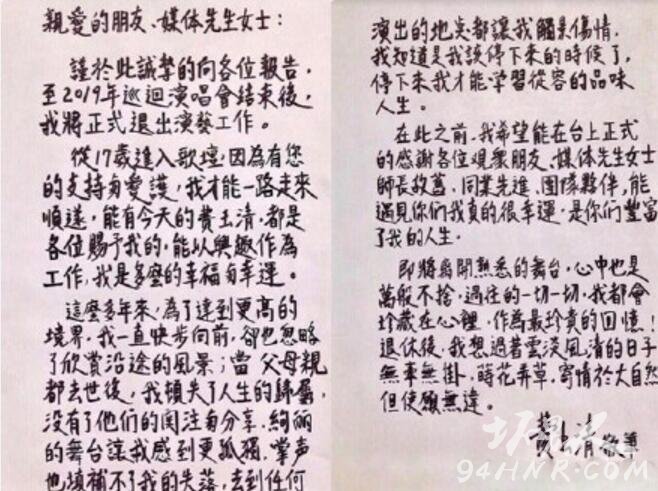 親愛的朋友、媒体先生女士：
謹於此誠摯的向各位報告，
至2019年巡迴演唱會結束後，
我將正式退出演藝工作。
從17歲進入歌壇，因為有您
的支持與愛護，我才能一路走來
順遂，能有今天的費玉清，都是
各位賜予我的，能以興趣作為
工作，我是多麼的幸福與幸運。
這麼多年來，為了達到更高的
境界，我一直快步向前，卻也忽略
了欣賞沿途的風景；當父母親
都去世後，我頓失了人生的歸屬，
沒有了他們的関注與分享，絢麗
的舞台讓我感到更孤獨，掌声
也填補不了我的失落，去到任何
演出的地点都讓我觸景傷情，
我知道是我該停下來的時候了，
停下來我才能学習從容的品味
人生。
在此之前，我希望能在台上正式
的感謝各位观衆朋友、媒体先生女士
師長故舊、同業先進、團隊夥伴，能
遇見你們我真的很幸運，是你們豐富
了我的人生。
即將離開熟悉的舞台，心中也是
萬般不捨，過往的一切一切，我都會
珍藏在心裡，作為最珍貴的回憶！
退休後，我想過著雲淡風清的日子
無牽無掛，蒔花弄草，寄情於大自然
但使願無違。
費玉清 敬筆
94HNR.COM